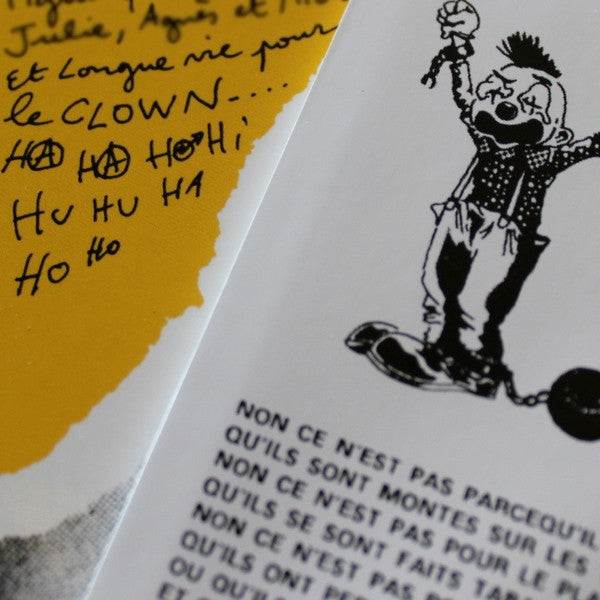 Julie, Agnès et
Et Longue vie pour
le CLOWN----
HA HA HO Hi
HU HU HA
HO Ho
NON CE N'EST PAS PARCEQU'IL
QU'ILS SONT MONTES SUR LES
NON CE N'EST PAS POUR LE
QU'ILS SE SONT FAITS
NON CE N'EST PAS
QU'ILS ONT
OU QU'IL